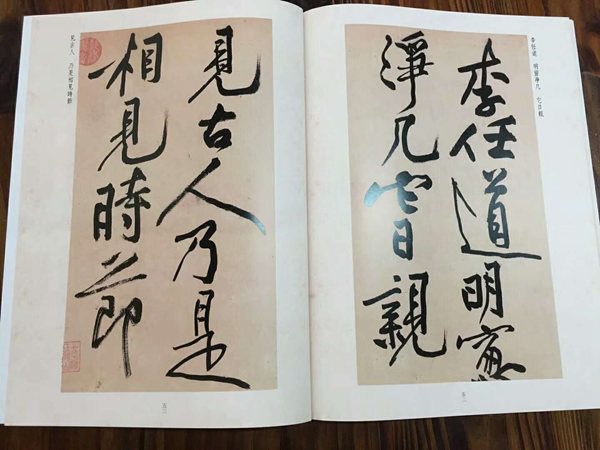 李任道 明窗淨几 它日親
李任道明窗
淨几它日親
見古人乃是
相見時節
見古人 乃是相見時節